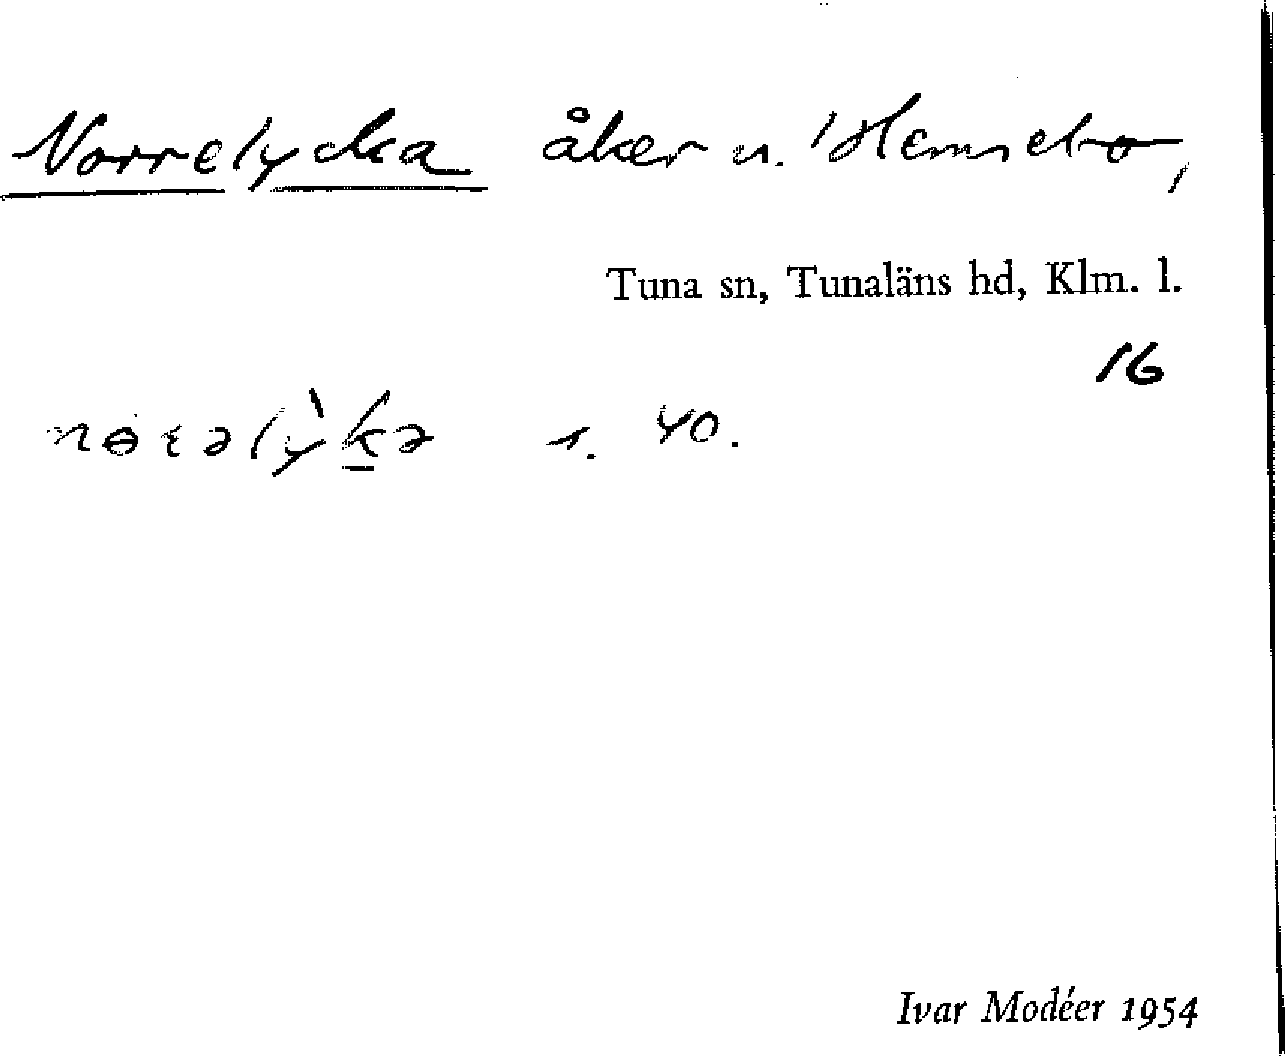 Norrelycka åker u. Hemsebo,
Tuna sn, Tunaläns hd, Klm. l.
16
s. 40.
Ivar Modéer 1954